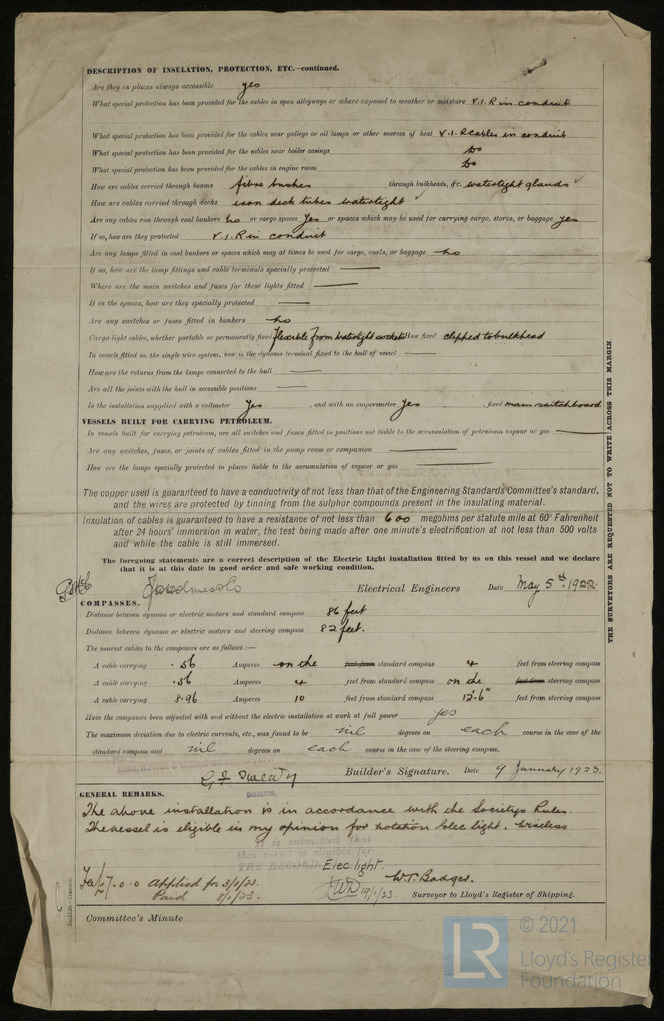 DESCRIPTION OF INSULATION, PROTECTION, ETC.—continued.
Are they in places always accessible yes
What special protection has been provided for the cables in open alleyways or where exposed to weather or moisture V.I.R in conduit
What special protection has been provided for the cables near galleys or oil lamps or other sources of heat V.I.R cables in conduit
What special protection has been provided for the cables near boiler casings Do
What special protection has been provided for the cables in engine room Do
How are cables carried through beams fibre bushes through bulkheads, &c. watertight glands
How are cables carried through decks iron deck tubes watertight
Are any cables run through coal bunkers no or cargo spaces Yes or spaces which may be used for carrying cargo, stores, or baggage yes
If so, how are they protected V.I.R in conduit
Are any lamps fitted in coal bunkers or spaces which may at times be used for cargo, coals, or baggage no
If so, how are the lamp fittings and cable terminals specially protected
Where are the main switches and fuses for these lights fitted
If in the spaces, how are they specially protected
Are any switches or fuses fitted in bunkers no
Cargo light cables, whether portable or permanently fixed flexible from watertight sockets How fixed clipped to bulkhead
In vessels fitted on the single wire system, how is the dynamo terminal fixed to the hull of vessel
How are the returns from the lamps connected to the hull
Are all the joints with the hull in accessible positions
Is the installation supplied with a voltmeter Yes , and with an amperemeter Yes , fixed main switchboard
VESSELS BUILT FOR CARRYING PETROLEUM.
In vessels built for carrying petroleum, are all switches and fuses fitted in positions not liable to the accumulation of petroleum vapour or gas
Are any switches, fuses, or joints of cables fitted in the pump room or companion
How are the lamps specially protected in places liable to the accumulation of vapour or gas
The copper used is guaranteed to have a conductivity of not less than that of the Engineering Standards Committee's standard,
and the wires are protected by tinning from the sulphur compounds present in the insulating material.
Insulation of cables is guaranteed to have a resistance of not less than 600 megohms per statute mile at 60° Fahrenheit
after 24 hours' immersion in water, the test being made after one minute's electrification at not less than 500 volts
and while the cable is still immersed.
The foregoing statements are a correct description of the Electric Light installation fitted by us on this vessel and we declare
that it is at this date in good order and safe working condition.
Electrical Engineers Date May 5th 1922
COMPASSES.
Distance between dynamo or electric motors and standard compass 86 feet
Distance between dynamo or electric motors and steering compass 82 feet.
The nearest cables to the compasses are as follows:—
A cable carrying .56 Amperes on the feet from standard compass 4 feet from steering compass
A cable carrying .56 Amperes 4 feet from standard compass on the feet from steering compass
A cable carrying 8.96 Amperes 10 feet from standard compass 12'.6" feet from steering compass
Have the compasses been adjusted with and without the electric installation at work at full power yes
The maximum deviation due to electric currents, etc., was found to be nil degrees on each course in the case of the
standard compass and nil degrees on each course in the case of the steering compass.
Builder's Signature. Date 9 January 1923.
DIRECTOR.
GENERAL REMARKS.
The above installation is in accordance with the Society's Rules.
The vessel is eligible in my opinion for notation Elec light. Wireless
It is submitted that
this vessel is eligible for
THE RECORD. Elec. light.
W.T. Badger.
Applied for 3/1/23
19/1/23 Surveyor to Lloyd's Register of Shipping.
Paid 8/1/23.
Committee's Minute
THE SURVEYORS ARE REQUESTED NOT TO WRITE ACROSS THIS MARGIN.
LR
© 2021
Lloyd's Register
Foundation